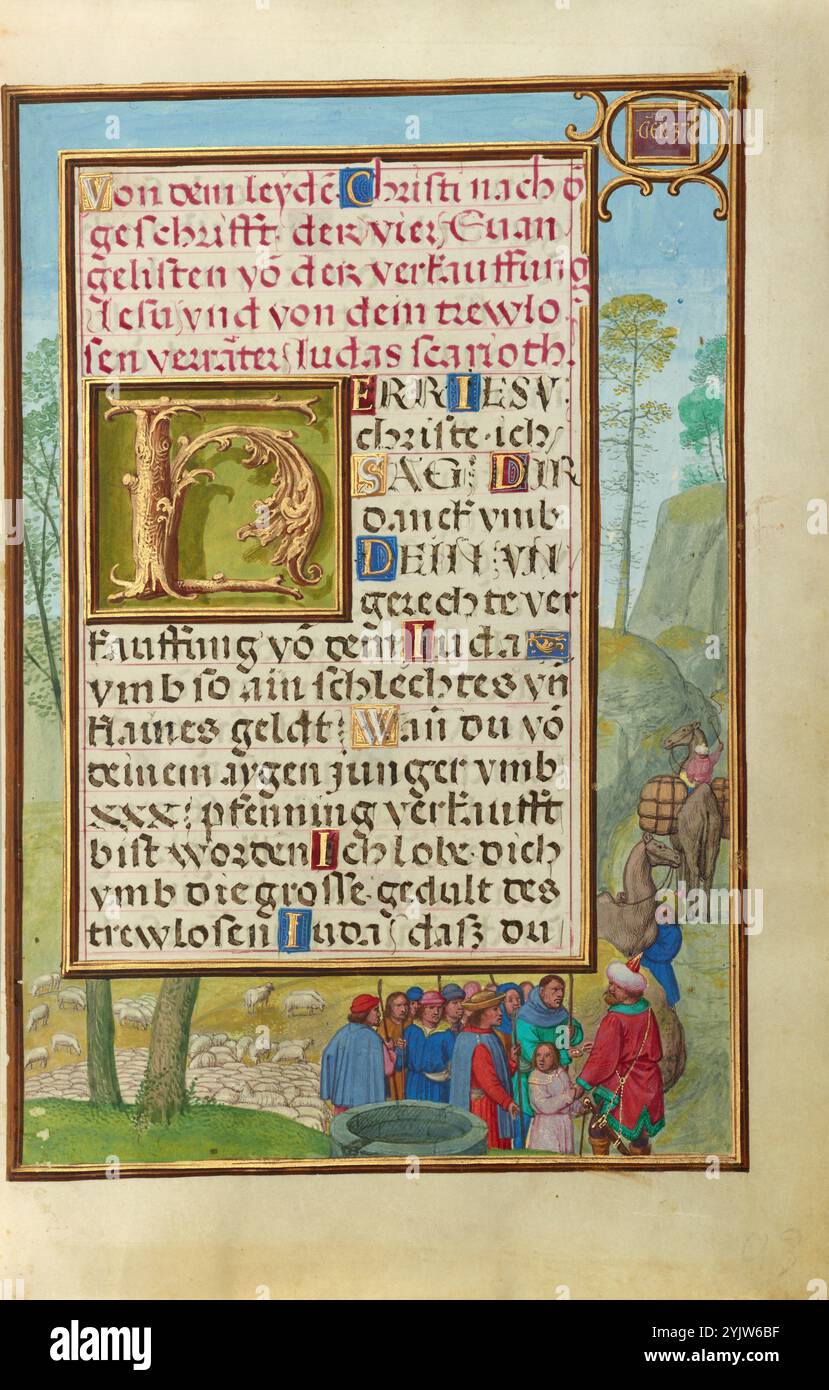 GEN·37
Von dem leydē Christi nach d̄
geschrifft der vier Euan
gelisten vō der verkauffung
Jesu vnd von dem trewlo
sen verräter Judas scarioth.
HERR IESV
christe ich
SAG DIR
danck vmb
DEIN VN
gerechte ver
kauffung vō dem Iuda
vmb so ain schlechtes vn̄
klaines geldt Wan̄ du vō
deinem aygen junger vmb
xxx pfenning verkaufft
bist worden Ich lobe dich
vmb die grosse gedult des
trewlosen Iuda das du
alamy
Image ID: 2YJW6BF
www.alamy.com